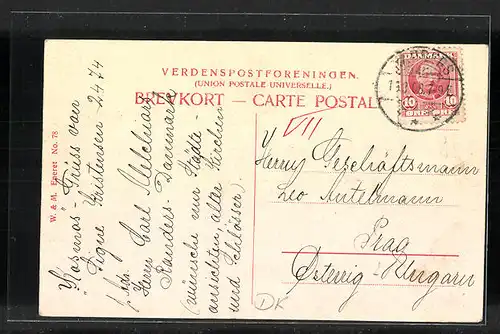 VERDENSPOSTFORENINGEN.
(UNION POSTALE UNIVERSELLE.)
BREVKORT — CARTE POSTALE
W. & M. Eneret No. 78
"Kosmos"-Gruss von
Signe Kristensen 2474
Herrn Carl Melchior
Randers-Danmark
(wünsche nur Städte-
ansichten, alter Kirchen
und Schlösser)
VII
Herrn Geschäftsmann
Leo Antelmann
Prag
Österrig-Ungarn
DK
DANMARK
10 10